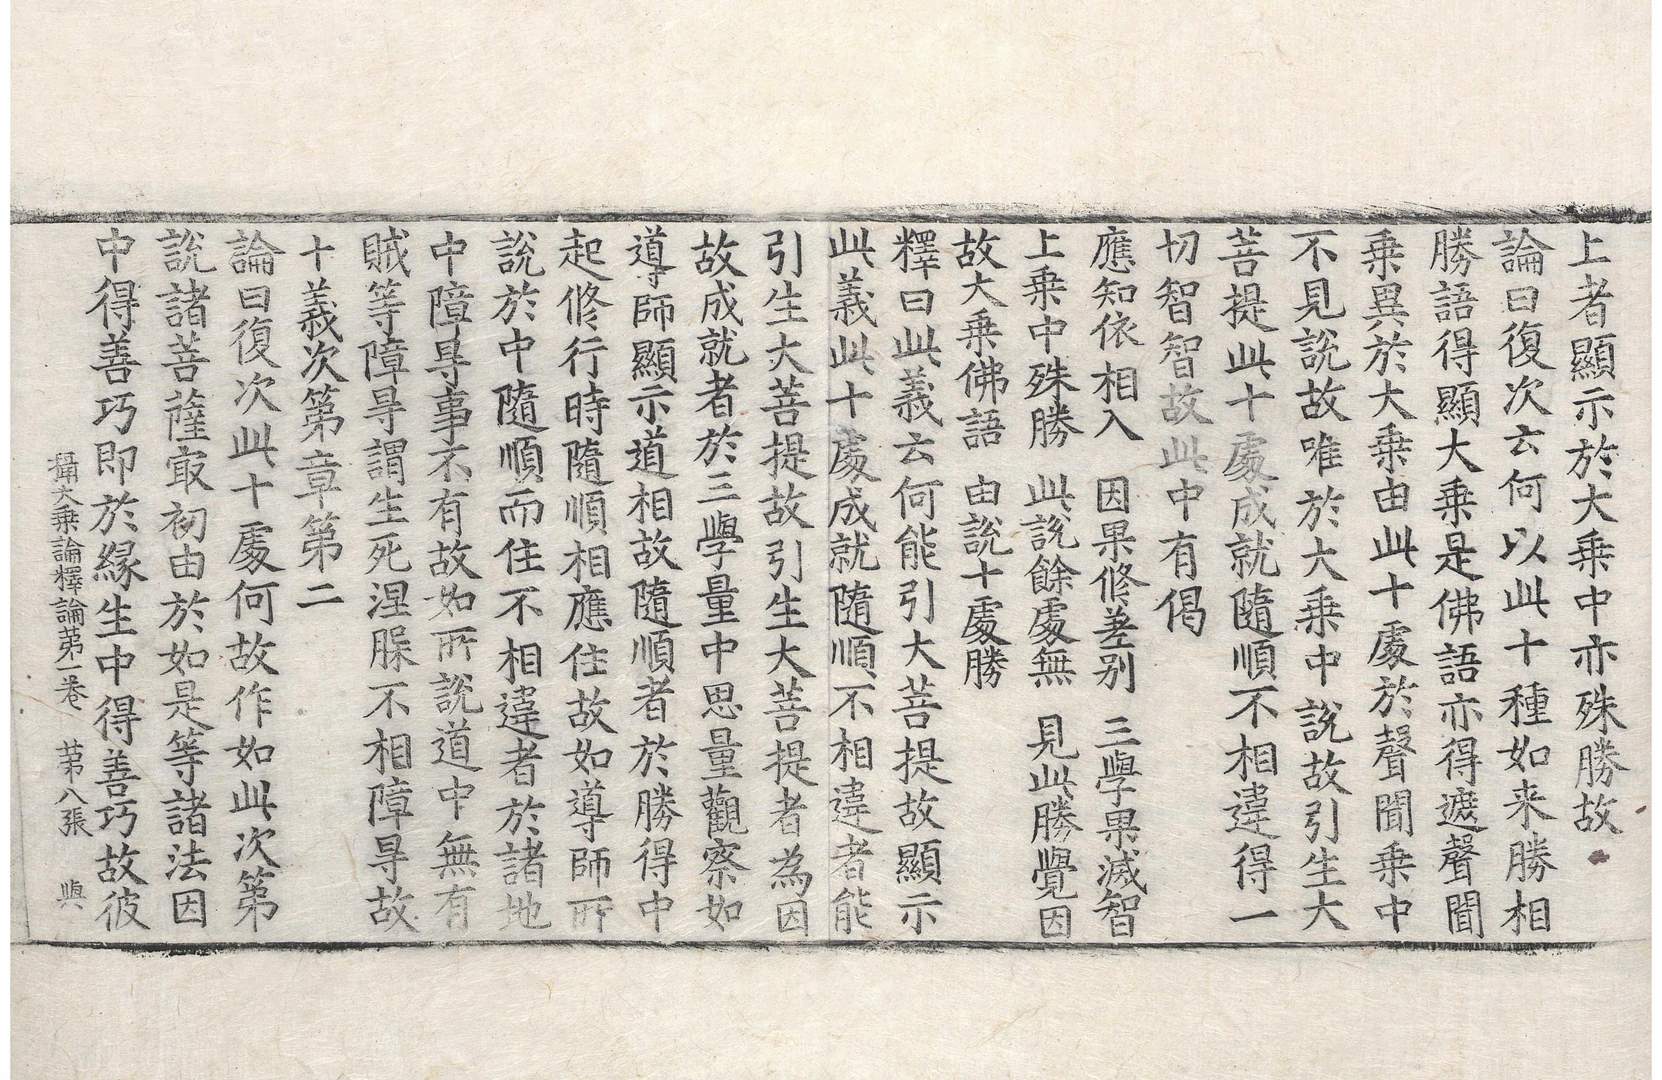 上者顯示於大乗中亦殊勝故
論曰復次云何以此十種如来勝相
勝語得顯大乗是佛語亦得遮聲聞
乗異於大乗由此十處於聲聞乗中
不見説故唯於大乗中說故引生大
菩提此十處成就隨順不相違得一
切智智故此中有偈
應知依相入　因果修差别　三學果滅智
上乗中殊勝　此說餘處無　見此勝覺因
故大乗佛語　由說十處勝
釋曰此義云何能引大菩提故顯示
此義此十處成就隨順不相違者能
引生大菩提故引生大菩提者為因
故成就者於三學量中思量觀察如
導師顯示道相故隨順者於勝得中
起修行時隨順相應住故如導師所
說於中隨順而住不相違者於諸地
中障㝵事不有故如所說道中無有
賊等障㝵謂生死涅槃不相障㝵故
十義次第章第二
論曰復次此十處何故作如此次第
說諸菩薩㝡初由於如是等諸法因
中得善巧即於緣生中得善巧故彼
攝大乗論釋論第一卷　第八張　與